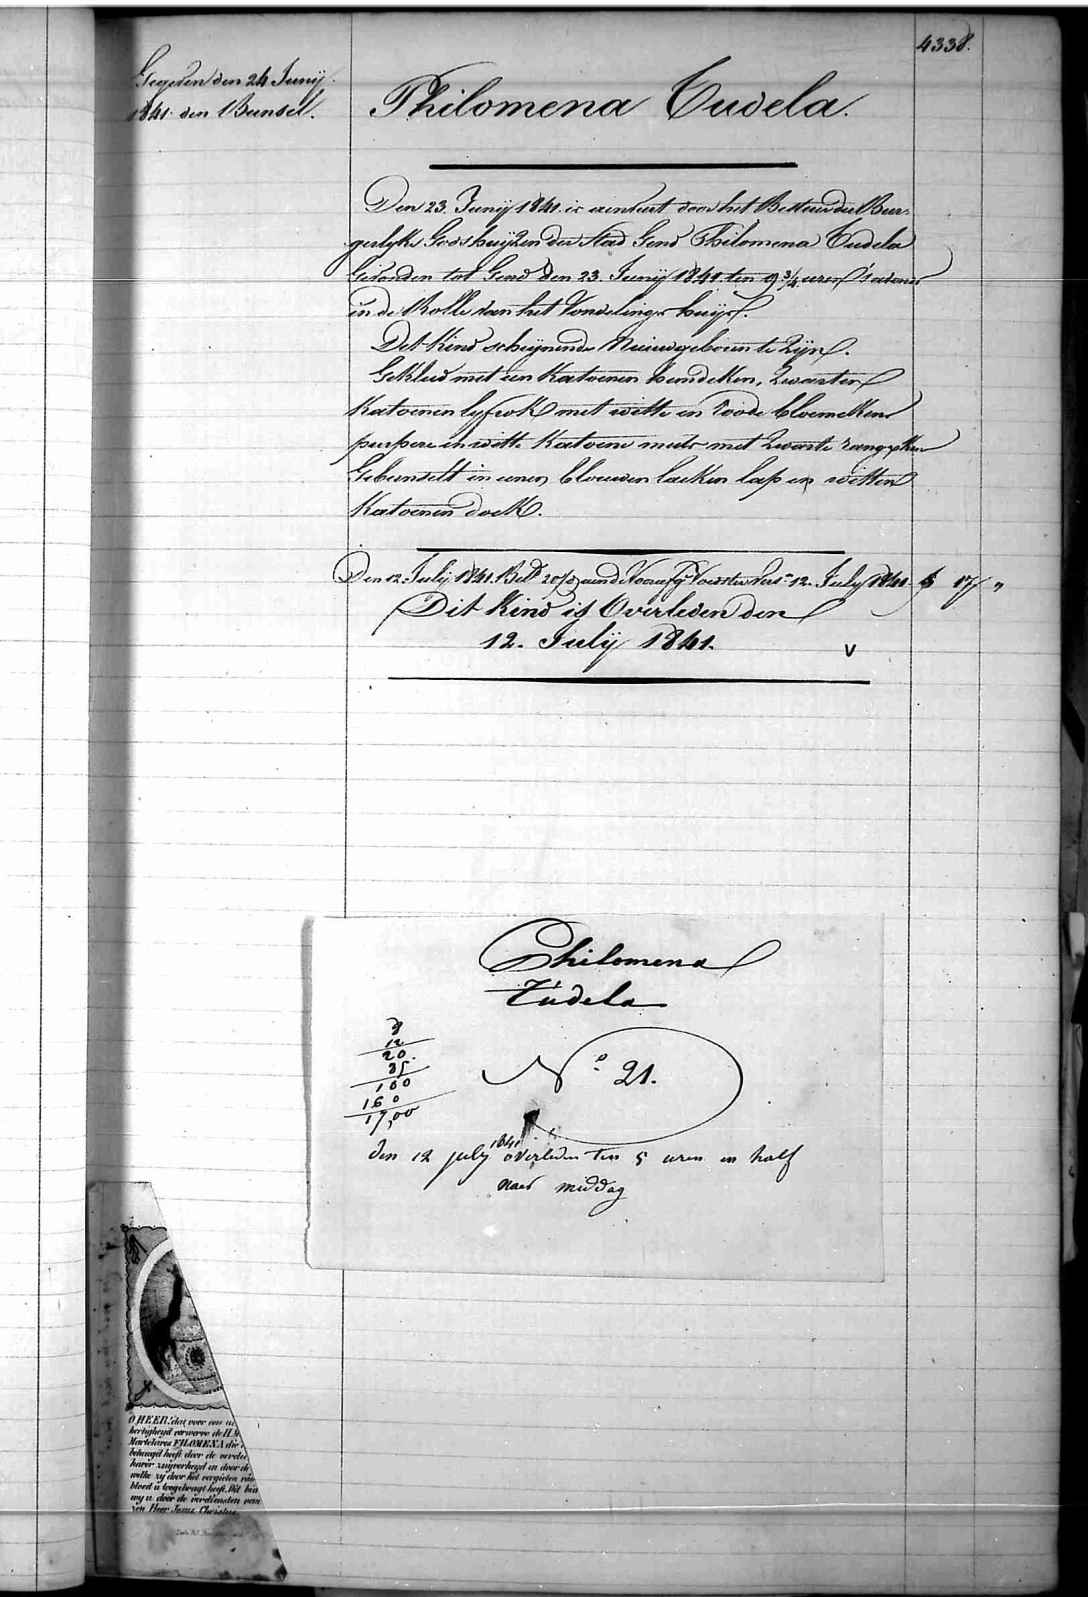 4338.
Gegeven den 24 Junij
1841. den Bunsel.
Philomena Tudela.
Den 23. Junij 1841. is door het Bestuur der Bur-
gerlyke Godshuijzen der Stad Gend Philomena Tudela
Gevonden tot Gend den 23. Junij 1841. ten 9 3/4 uren 's avonds
in de Rolle van het Vondelingshuijs.
Det Kind schijnende Nieuwgeboren te Zijn.
Gekleed met een Katoenen hemdeken, Zwarten
Katoenen lyfrok met witte en roode bloemekens
purpere en witte Katoene muts met Zwarte
Gebunselt in eenen blauwen laeken lap en witten
Katoenen doek.
Den 12. July 1841. 12. July 1841. 17 "
Dit Kind is Overleden den
12. Julij 1841.
v
Philomena
Tudela
8
12
20.
35
100
160
17,00
N.o 21.
den 12 july 1841 overleden ten 5 uren en half
naer middag
O HEER! dat voor ons
hertigheyd verwerve de H.
Martelares FILOMENA die
behaegd heeft door de
harer zuyverheyd en door de
welke zy door het vergieten van
bloed u toegebragt heeft. Dit
my u door de verdiensten van
zen Heer Jesus Christus